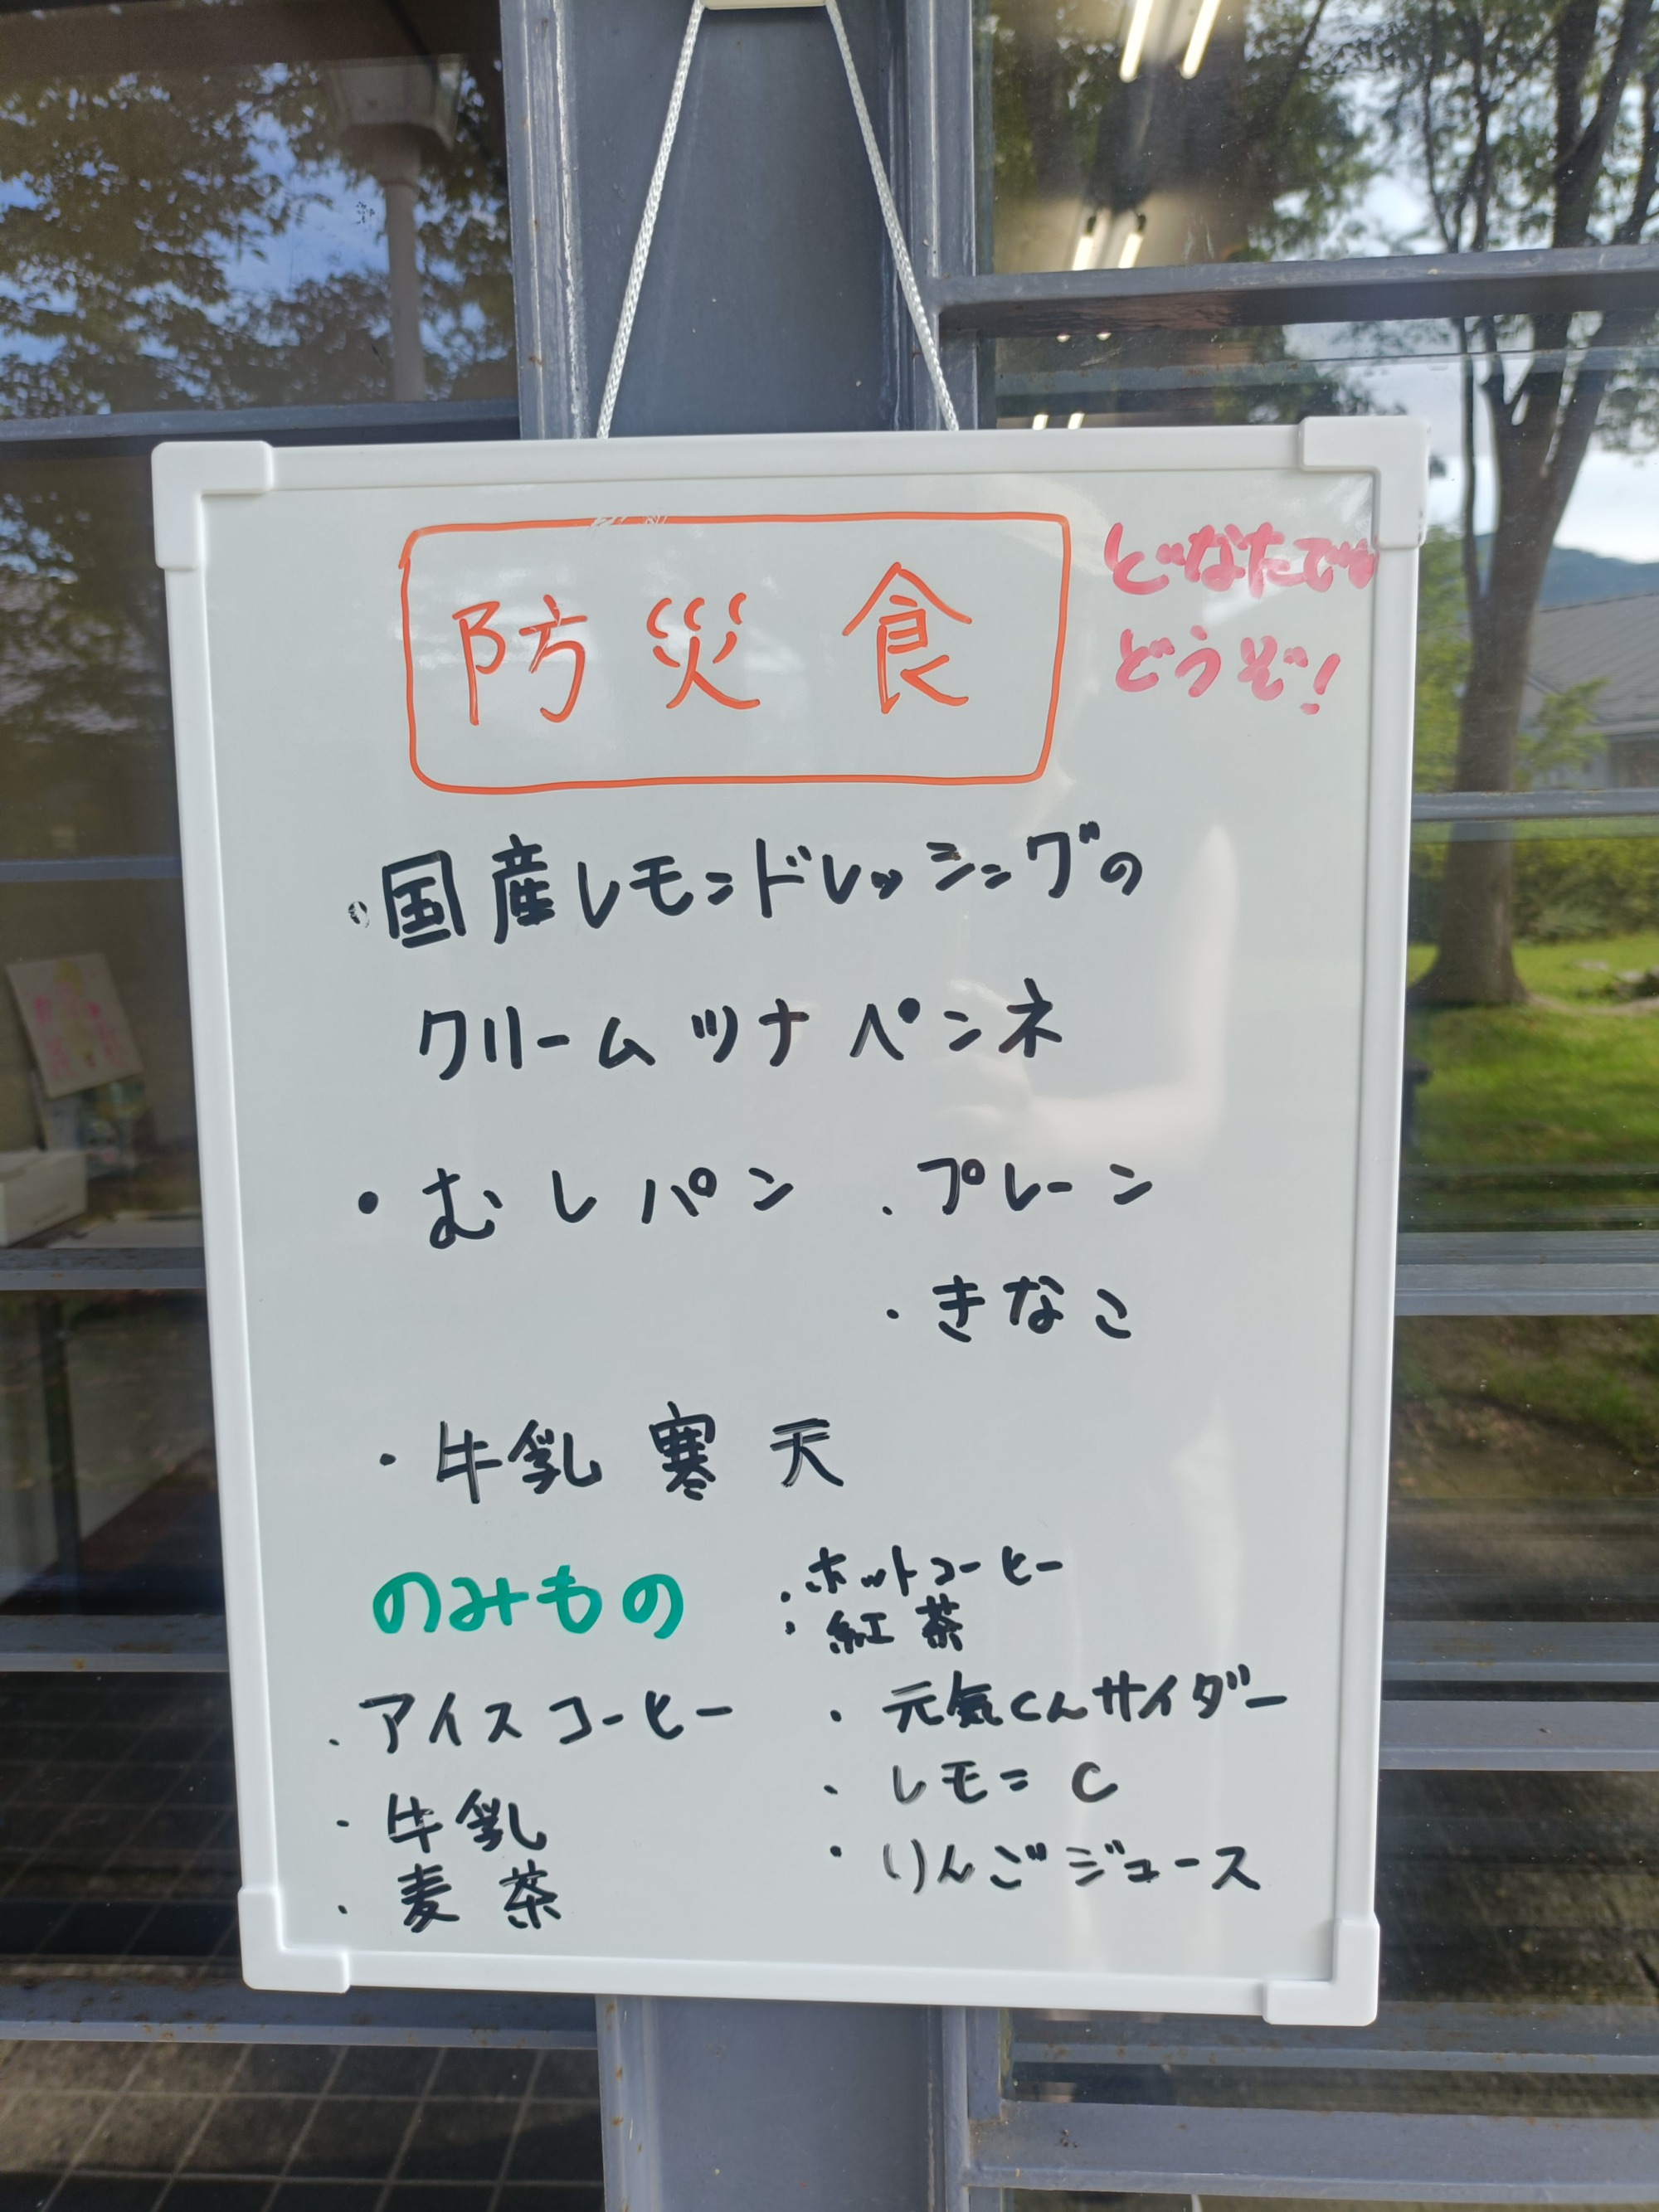 防災食
どなたでも
どうぞ!
・国産レモンドレッシングの
クリームツナペンネ
・むしパン ・プレーン
・きなこ
・牛乳寒天
のみもの
・ホットコーヒー
・紅茶
・アイスコーヒー
・牛乳
・麦茶
・元気くんサイダー
・レモンC
・りんごジュース